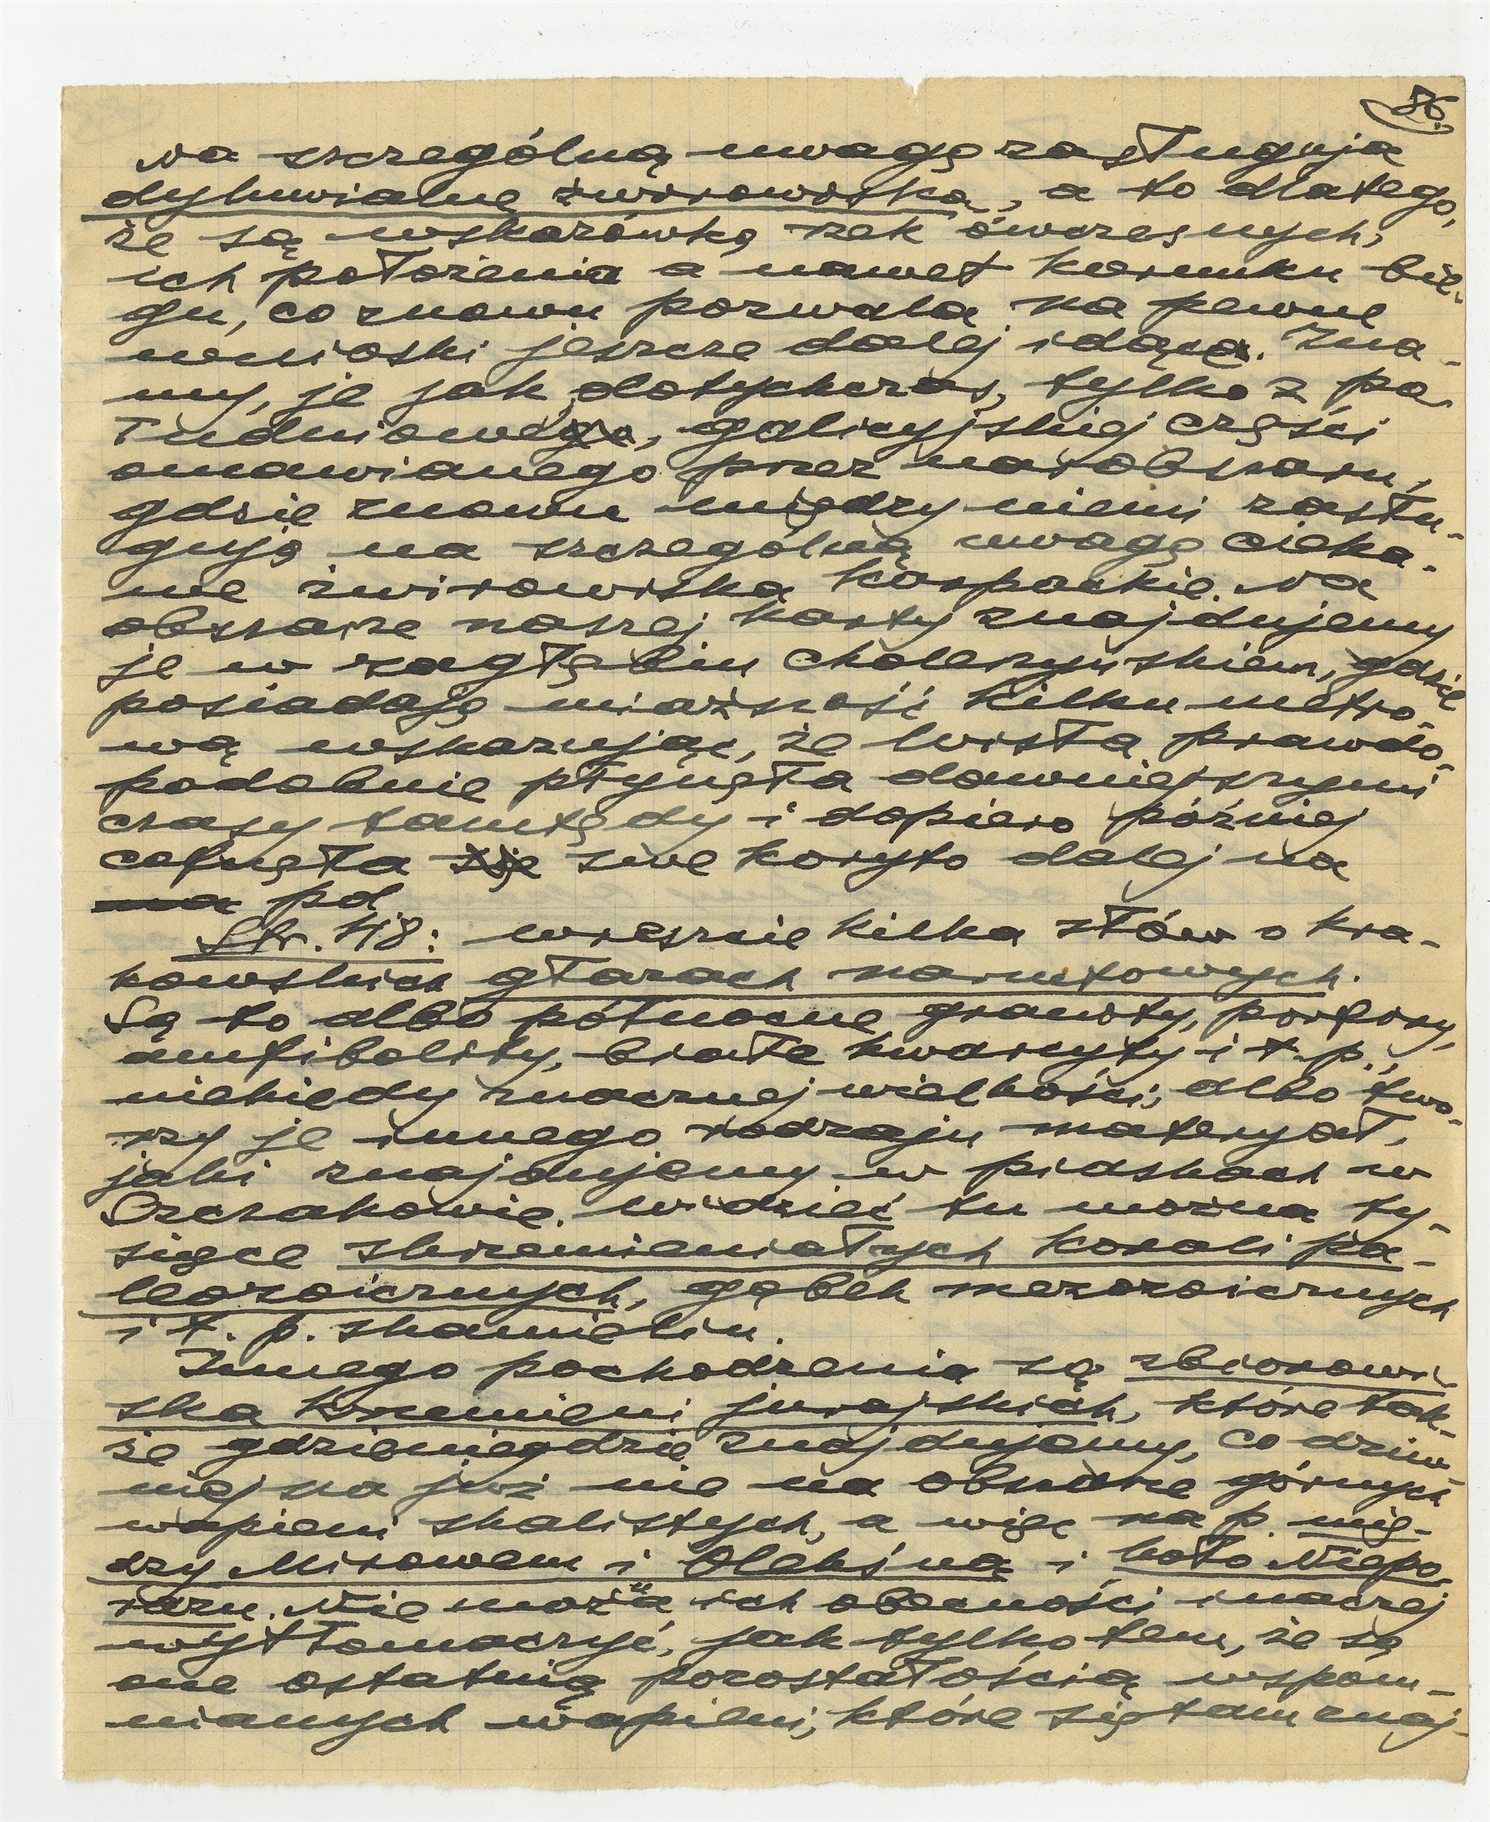 86.
Na szczególną uwagę zasługują
dyluwialne żwirowiska, a to dlatego,
że są wskazówką rzek ówczesnych,
ich położenia a nawet kierunku bie-
gu, co znowu pozwala na pewne
wnioski jeszcze dalej idące. Zna-
my je jak dotychczas, tylko z po-
łudniowej, galicyjskiej części
omawianego przez nas obszaru,
gdzie znowu między niemi zasłu-
gują na szczególną uwagę cieka-
we żwirowiska karpackie. Na
obszarze naszej karty znajdujemy
je w zagłębiu cholerzyńskiem, gdzie
posiadają miąższość kilkumetro-
wą wskazując, że Wisła prawdo-
podobnie płynęła dawniejszymi
czasy tamtędy i dopiero później
cofnęła się swe koryto dalej na
na pd
Str. 48: Wreszcie kilka słów o kra-
kowskich głazach narzutowych.
Są to albo północne granity, porfiry,
amfibolity, białe kwarcyty i t. p.,
niekiedy znacznej wielkości, albo two-
rzy je innego rodzaju materyał,
jaki znajdujemy w piaskach w
Szczakowie. Widzieć tu można ty-
siące skrzemieniałych korali pa-
leozoicznych, gąbek mezozoicznych
i t. p. skamielin.
Innego pochodzenia są zbiorowi-
ska krzemieni jurajskich, które tak-
że gdzieniegdzie znajdujemy, co dziw-
niejsza już nie na obszarze górnych
wapieni skalistych, a więc na p. mię-
dzy Mirowem i Okleśną i koło Niepo-
razu. Nie można ich obecności inaczej
wytłomaczyć, jak tylko tem, że są
one ostatnią pozostałością wspom-
nianych wapieni, które się tam znaj-